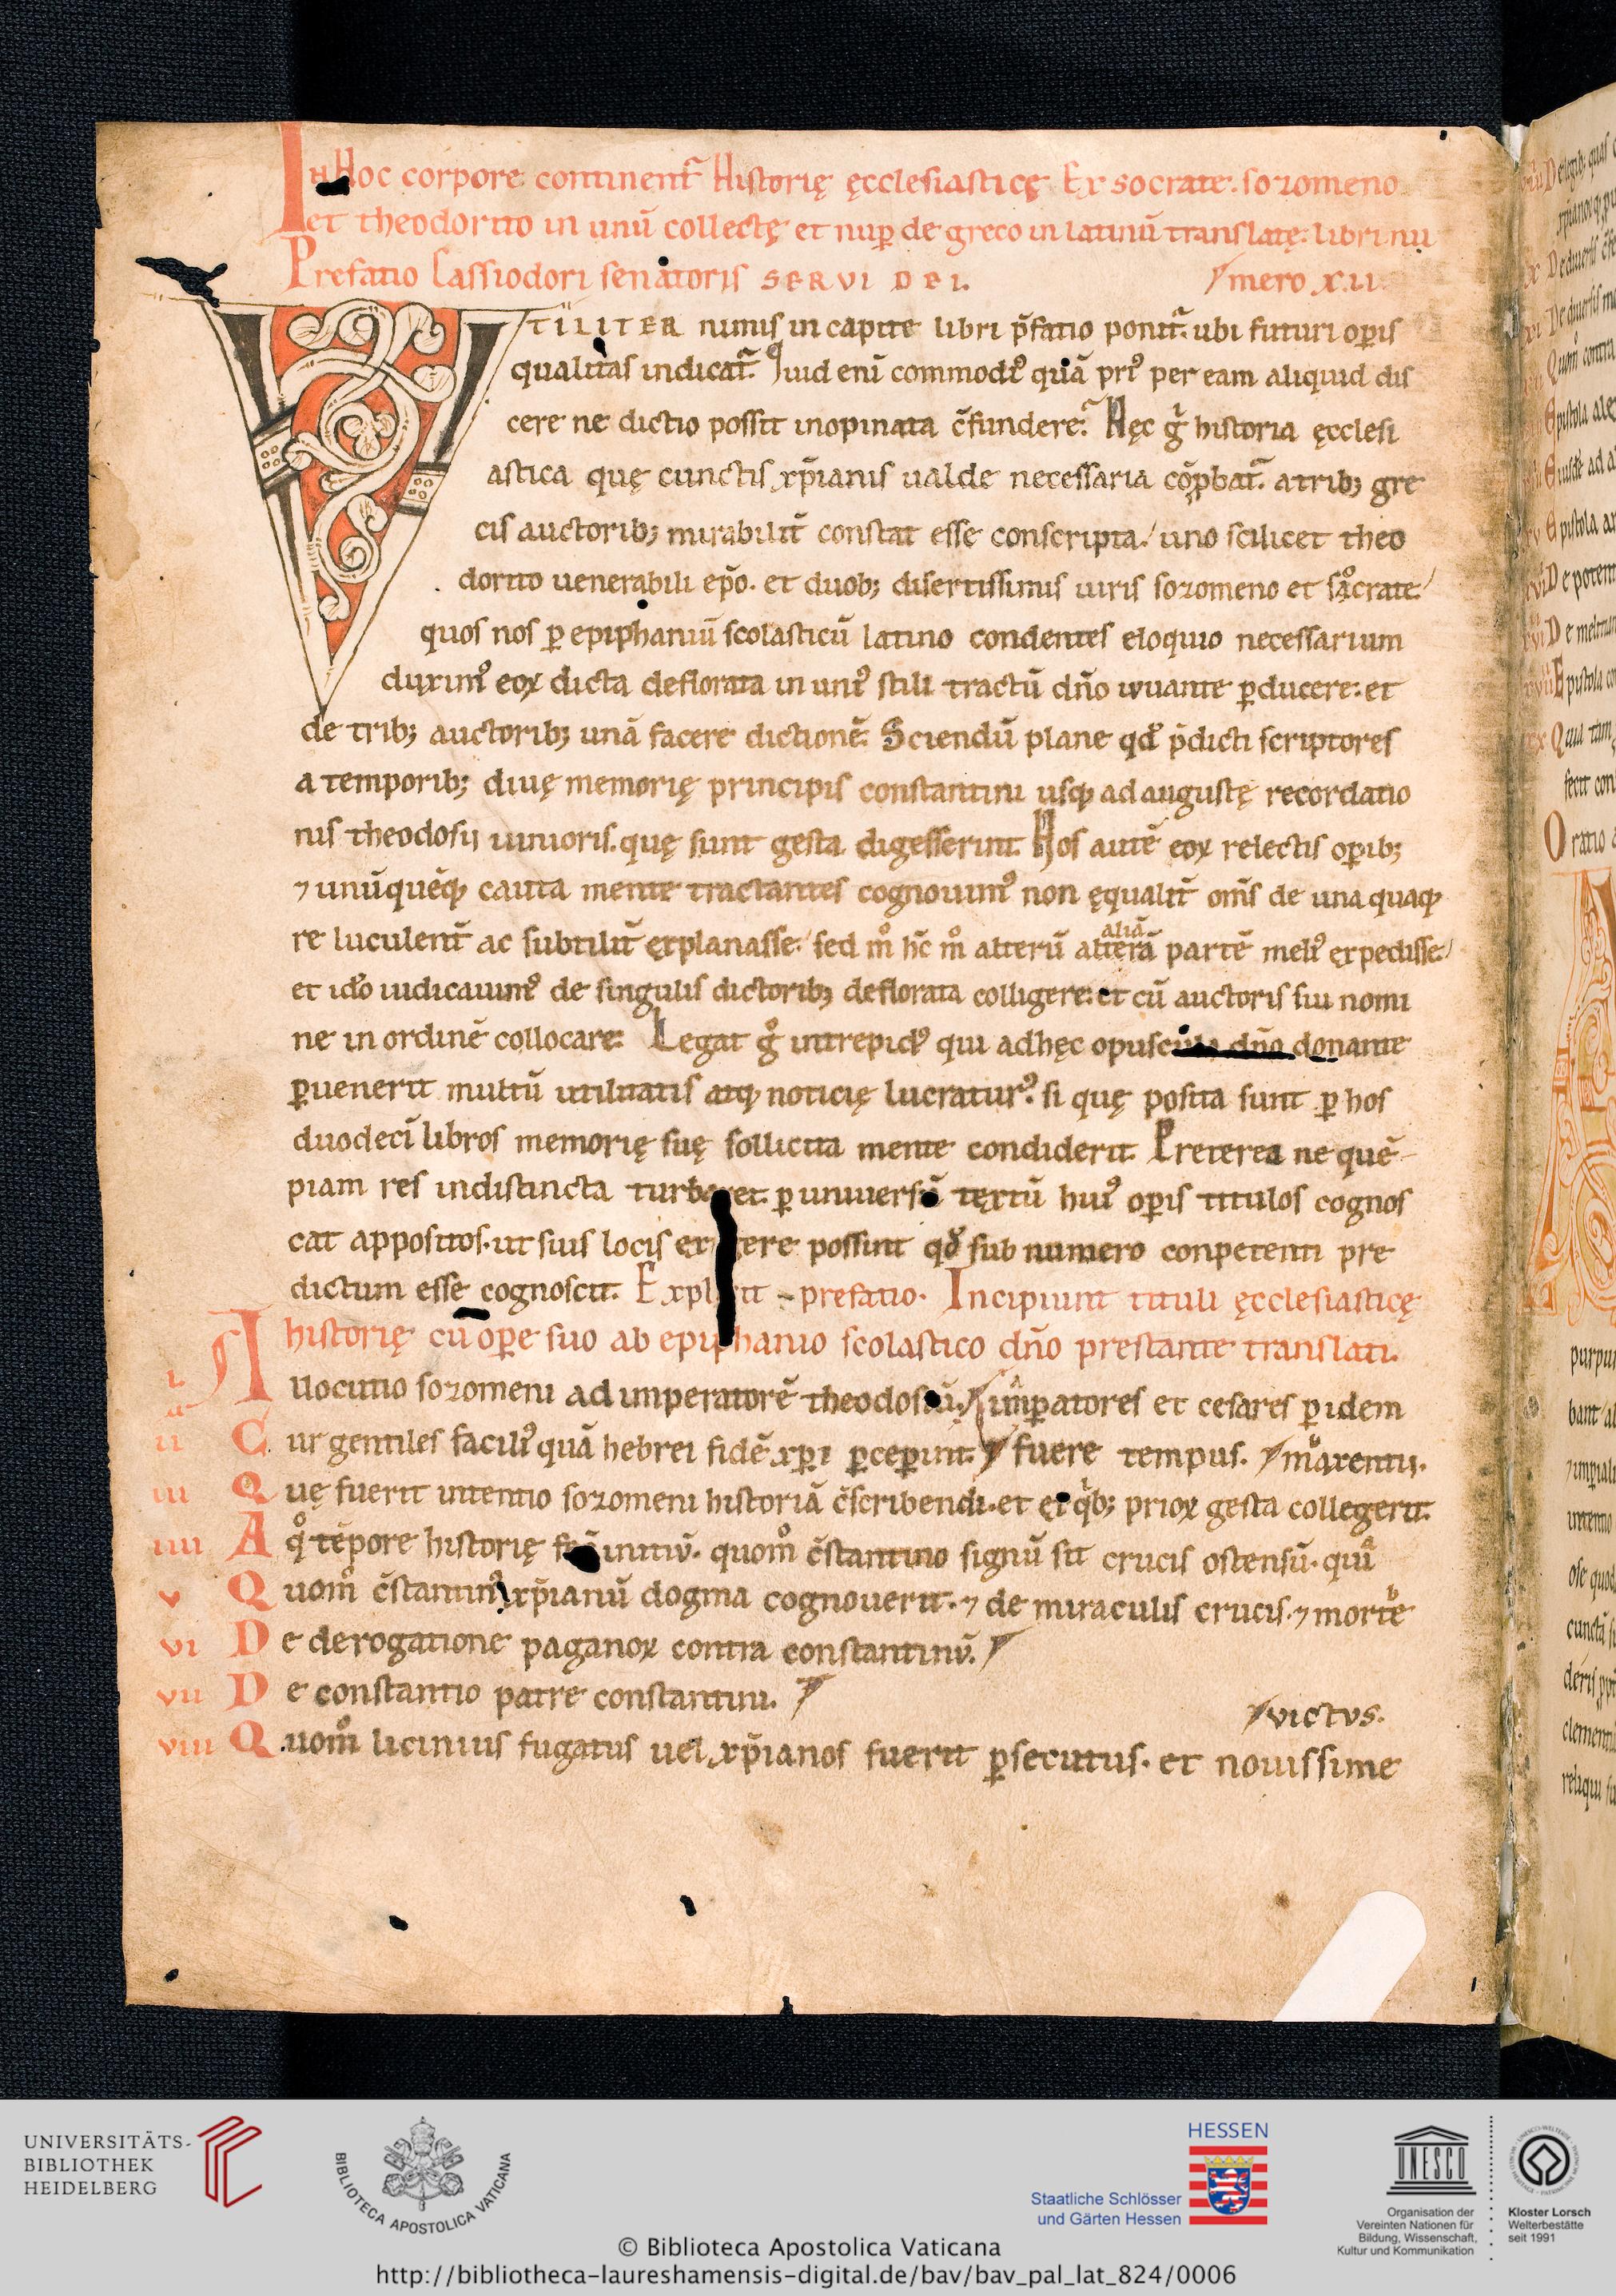 In Hoc corpore continent᷑ Historię ęcclesiasticę Ex socrate. sozomeno
et theodorito in unū collectę et nup̄ de greco in latinū translatę. libri nu
Prefatio Cassiodori senatoris SERVI DEI. mero XII.
VTILITER nimis in capite libri p̄fatio ponit᷑. ubi futuri op̄is
qualitas indicat᷑. Quid enī commodiꝰ quā priꝰ per eam aliquid dis
cere ne dictio possit inopinata c̄fundere᷑. Hęc g̊ historia ęcclesi
astica quę cunctis xp̄ianis ualde necessaria cōp̱bat᷑. a trib; gre
cis auctorib; mirabilit̄ constat esse conscripta. uno scilicet theo
dorito uenerabili ep̄o. et duob; disertissimis uiris sozomeno et socrate.
quos nos ꝑ epiphaniū scolasticū latino condentes eloquio necessarium
duximꝰ eoꝝ dicta deflorata in uniꝰ stili tractū dn̄o iuuante ꝑducere. et
de trib; auctorib; unā facere dictionē. Sciendū plane qd̄ p̄dicti scriptores
a temporib; diuę memorię principis constantini usq; ad augustę recordatio
nis theodosii iunioris. quę sunt gesta digesserint. Hos autē eoꝝ relectis op̄ib;
⁊ unūquēq; cauta mente tractantes cognouimꝰ non ęqualit̄ om̄s de una quaq;
re luculent̄ ac subtilit̄ explanasse. sed m̊ hc̄ m̊ alterū alterā partē meliꝰ expedisse.
aliā
et id̊o iudicauimꝰ de singulis dictorib; deflorata colligere. et cū auctoris sui nomi
ne in ordinē collocare. Legat g̊ intrepidꝰ qui adhęc opuscula dn̄o donante
ꝑuenerit multū utilitatis atq; noticię lucraturꝰ. si quę posita sunt ꝑ hos
duodecī libros memorię suę sollicita mente condiderit. Preterea ne quē
piam res indistincta turbaret. ꝑ uniuersū textū huiꝰ op̄is titulos cognos
cat appositos. ut suis locis possint qd̄ sub numero conpetenti pre
dictum esse cognoscit. Explicit prefatio. Incipiunt tituli ęcclesiasticę
historię cū op̄e suo ab epiphanio scolastico dn̄o prestante translati.
I Allocutio sozomeni ad imperatorē theodosiū. imꝑatores et cesares ꝑ idem
II Cur gentiles faciliꝰ quā hebrei fidē xp̄i ꝑceꝑint. fuere tempus.
III Quę fuerit intentio sozomeni historiā c̄scribendi. et priorꝝ gesta collegerit.
IIII A q̊ tēpore historię initiū. quom̊ c̄stantino signū sit crucis ostensū.
V Quom̊ c̄stantinꝰ xp̄ianū dogma cognouerit. ⁊ de miraculis crucis.
VI De derogatione paganoꝝ contra constantinū.
VII De constantio patre constantini.
victus.
VIII Quom̊ licinius fugatus uel xp̄ianos fuerit ꝑsecutus. et nouissime
UNIVERSITÄTS-
BIBLIOTHEK
HEIDELBERG
BIBLIOTECA APOSTOLICA VATICANA
HESSEN
Staatliche Schlösser
und Gärten Hessen
UNESCO
Organisation der
Vereinten Nationen für
Bildung, Wissenschaft,
Kultur und Kommunikation
Kloster Lorsch
Welterbestätte
seit 1991
© Biblioteca Apostolica Vaticana
http://bibliotheca-laureshamensis-digital.de/bav/bav_pal_lat_824/0006